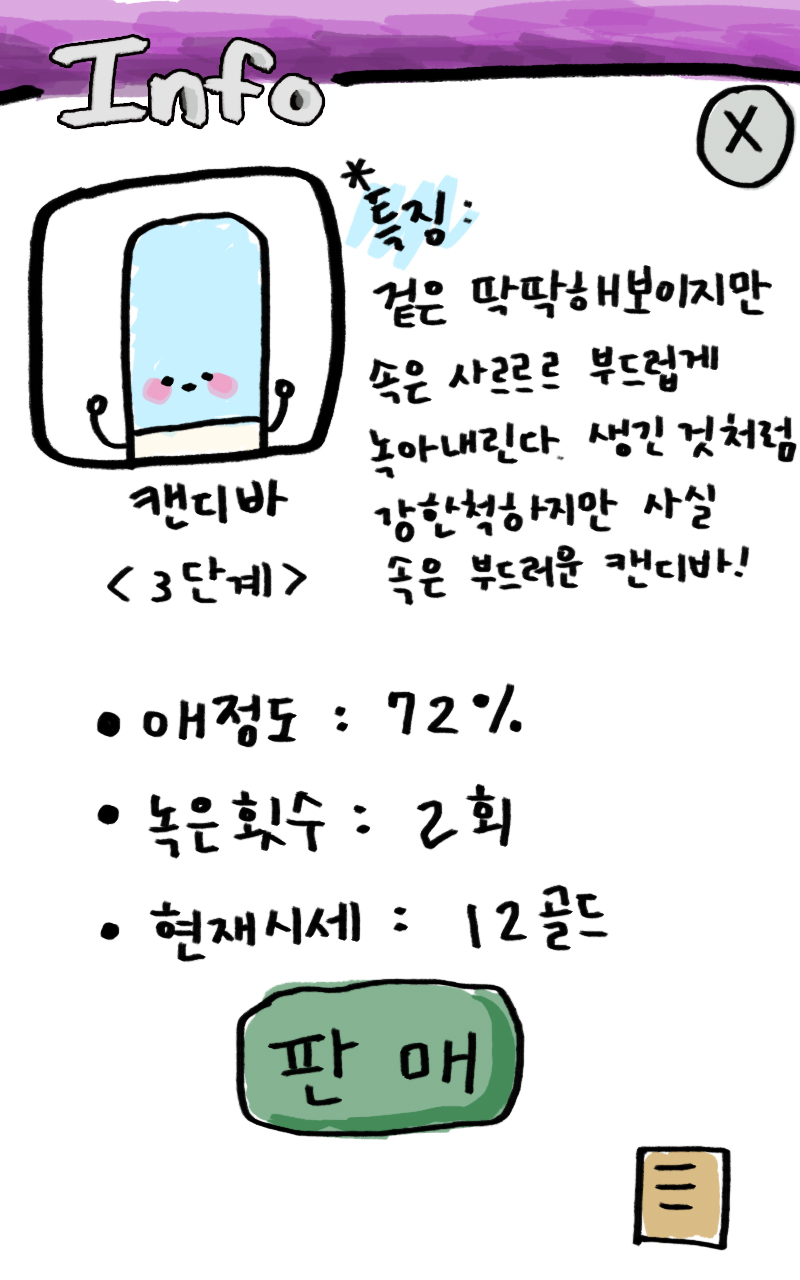 Info
X
*특징:
겉은 딱딱해보이지만
속은 사르르르 부드럽게
녹아내린다. 생긴 것처럼
강한척하지만 사실
속은 부드러운 캔디바!
캔디바
<3단계>
• 애정도 : 72%
• 녹은횟수 : 2회
• 현재시세 : 12골드
판매